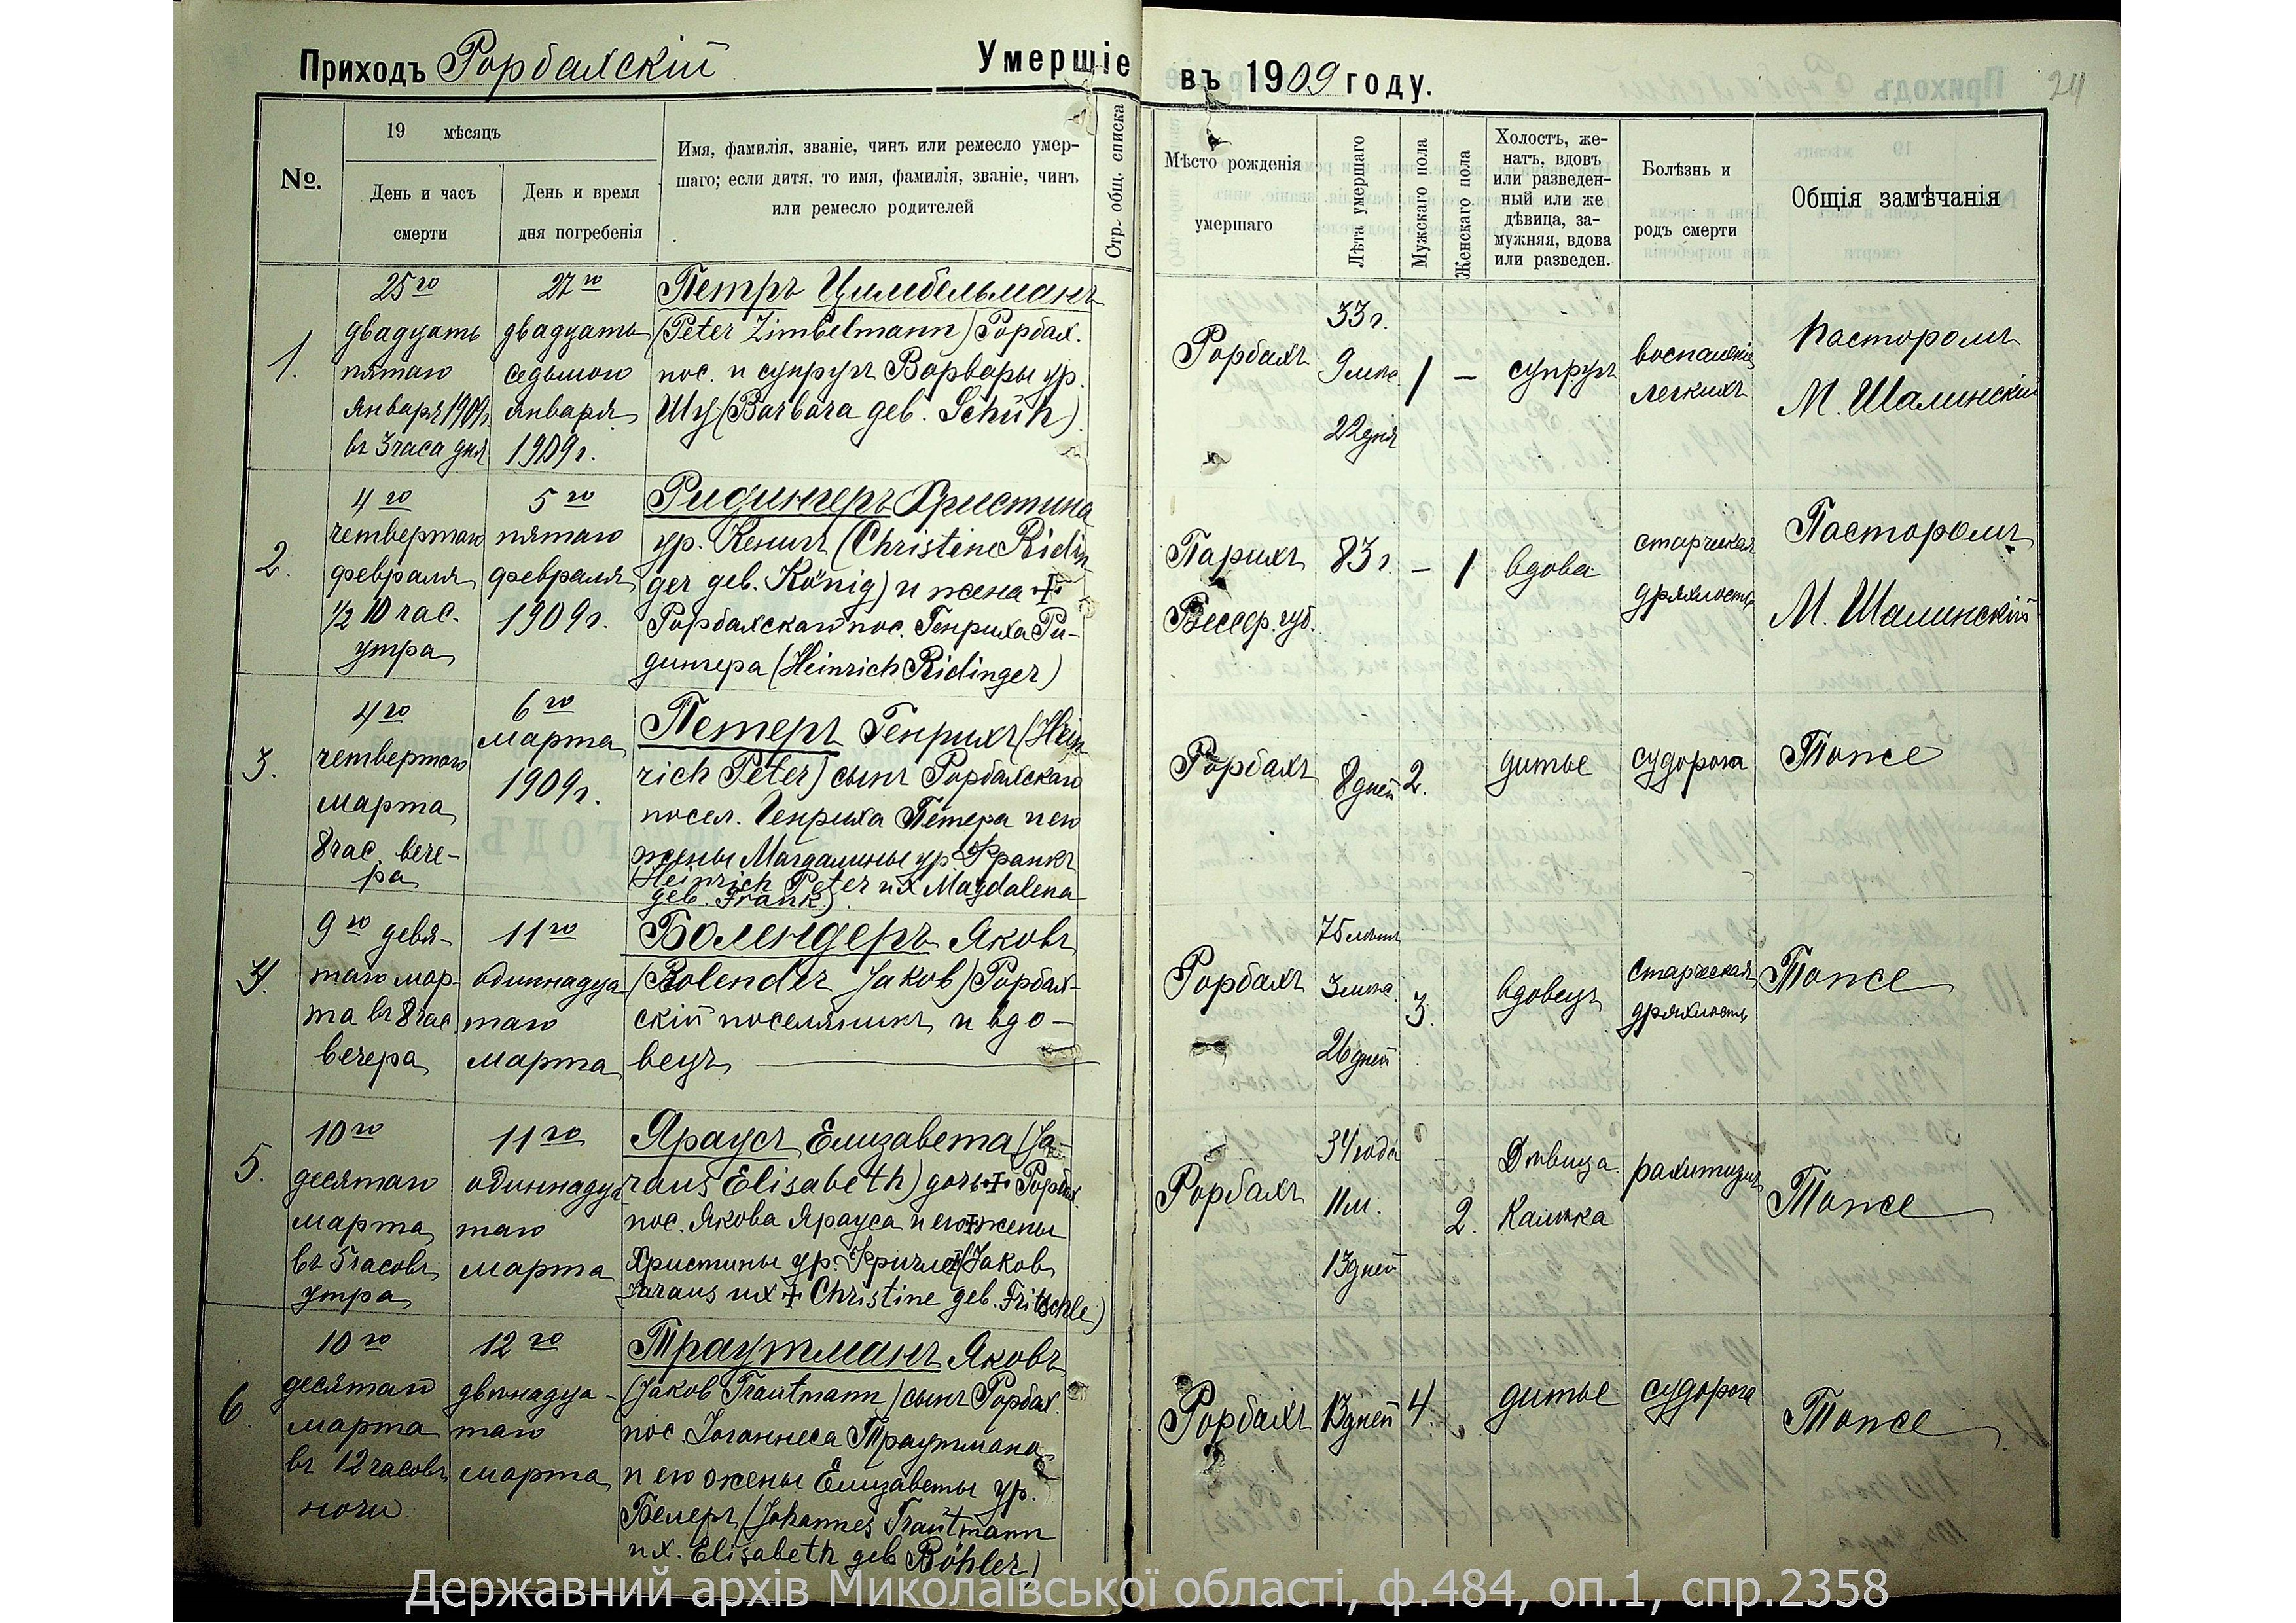 Приходъ Рорбахскій
Умершіе
въ 1909 году.
24
№.
19 мѣсяцъ
День и часъ
смерти
День и время
дня погребенія
Имя, фамилія, званіе, чинъ или ремесло умер-
шаго; если дитя, то имя, фамилія, званіе, чинъ
или ремесло родителей
Стр. общ. списка
Мѣсто рожденія
умершаго
Лѣта умершаго
Мужскаго пола
Женскаго пола
Холостъ, же-
натъ, вдовъ
или разведен-
ный или же
дѣвица, за-
мужняя, вдова
или разведен.
Болѣзнь и
родъ смерти
Общія замѣчанія
1.
25го
двадцать
пятаго
Января 1909г.
въ 3 часа дня
27го
двадцать
седьмого
января
1909г.
Петръ Цимбельманъ
(Peter Zimbelmann) Рорбах.
пос. и супругъ Варвары ур.
Шу (Barbara geb. Schüh)
Рорбахъ
33г.
9 мѣс
22 дня
1
–
супругъ
воспаленіе
легкихъ
Пасторомъ
М. Шалинскій
2.
4го
четвертаго
февраля
½ 10 час.
утра
5го
пятаго
февраля
1909г.
Ридингеръ Христина
ур. Кенигъ (Christine Ridin
ger geb. König) и жена +
Рорбахскаго пос. Генриха Ри-
дингера (Heinrich Ridinger)
Парижъ
Бессар. губ.
83г.
–
1
вдова
старческая
дряхлость
Пасторомъ
М. Шалинскій
3.
4го
четвертаго
марта
8 час. вече-
ра
6го
марта
1909г.
Петеръ Генрихъ (Hein
rich Peter) сынъ Рорбахскаго
посел. Генриха Петера и его
жены Магдалины ур Франкъ
(Heinrich Peter их Magdalena
geb. Frank)
Рорбахъ
8 дней
2.
дитье
судорога
Тоже
4.
9го девя-
таго мар-
та въ 8 час
вечера
11го
одиннадца
таго
марта
Болендеръ Яковъ
(Bolender Jakob) Рорбах-
скій поселянинъ и вдо-
вецъ
Рорбахъ
75 лѣтъ
3 мѣс.
26 дней
3.
вдовецъ
Старческая
дряхлость
Тоже
5.
10го
десятаго
марта
въ 5 часовъ
утра
11го
одиннадца
таго
марта
Яраусъ Елизавета (Ja-
raus Elisabeth) дочь + Рорбах
пос. Якова Ярауса и его + жены
Христины ур. Фричле (Jakob
Jaraus их + Christine geb. Fritschle)
Рорбахъ
34 года
11 м.
13 дней
–
2.
Дѣвица
Калѣка
рахитизмъ
Тоже
6.
10го
десятаго
марта
въ 12 часовъ
ночи
12го
двѣнадца-
таго
марта
Траутманъ Яковъ
(Jakob Trautmann) сынъ Рорбах.
пос. Іоганнеса Траутмана
и его жены Елизаветы ур.
Белеръ (Johannes Trautmann
их. Elisabeth geb Böhler)
Рорбахъ
13 дней
4.
дитье
судорога
Тоже
Державний архів Миколаївської області, ф.484, оп.1, спр.2358